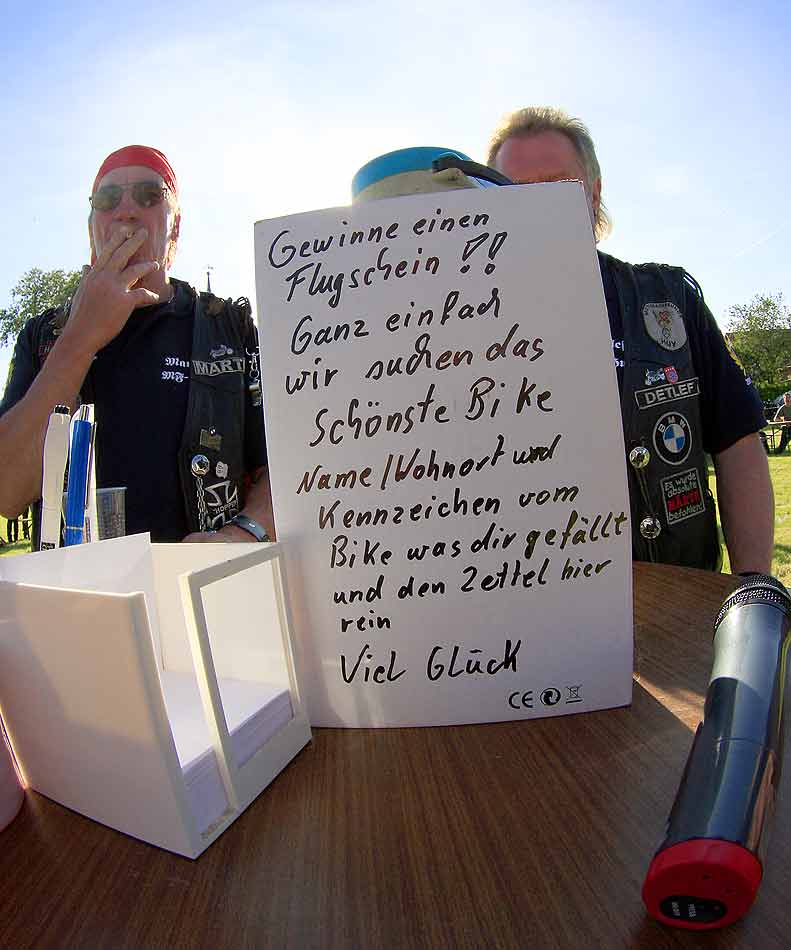 Gewinne einen
Flugschein !!
Ganz einfach
wir suchen das
Schönste Bike
Name/Wohnort und
Kennzeichen vom
Bike was dir gefällt
und den Zettel hier
rein
Viel Glück
CE
MART
DETLEF
BMW
Es wurde
absolute
HÄRTE
befohlen!
HUY